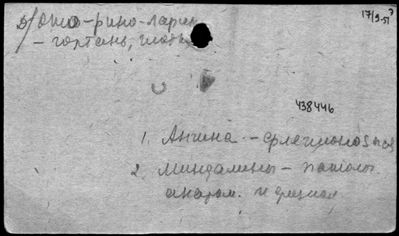 17/9-51
д/Ото-рино-ларин
- гортань, глотка
438446
1. Ангина - флегмоноз
2. Миндалины - патолог.
анатом. и физиол